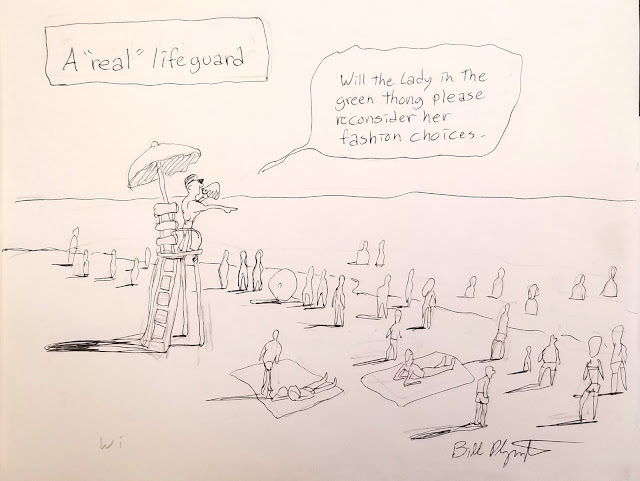 A "real" lifeguard
Will the Lady in the
green thong please
reconsider her
fashion choices.
Bill Plympton
wi